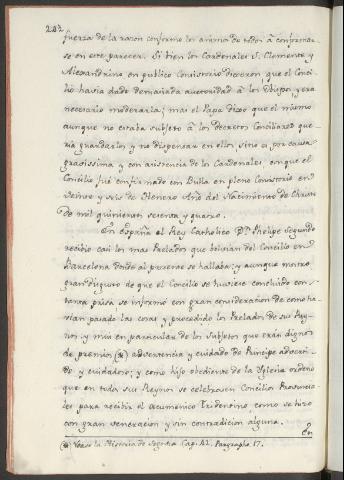 fuerza de la razon conformo los animos de todos à conformar
se en este parecer. Si bien los Cardenales S. Clemente y
Alexandrino en publico Consistorio dixeron, que el Conci
lio havia dado demasiada autoridad à los Obispos, y era
necesario moderarla; mas el Papa dixo que el mismo
aunque no estaba subjeto à los decretos Conciliares que
ria guardarlos y no dispensar en ellos sino es por causa
gravissima y con asistencia de los Cardenales con que el
Concilio fué confirmado con Bulla en pleno Consistorio en
veinte y seis de Henero Año del Nacimiento de Christo
de mil quinientos sesenta y quatro.
En españa el Rey Catholico Dn. Phelipe Segundo
recibio casi los mas Prelados que bolvian del Concilio en
Barcelona donde al presente se hallaba: y aunque mostro
gran disgusto de que el Concilio se huviese concluido con
tanta prisa se informo con gran consideracion de como ha
vian pasado las cosas y procedido los Prelados de sus Rey
nos, y mui en particular de los Subjetos que eran dignos
de premios (*) advertencia y cuidado de Principe
y cuidadoso; y como hijo obediente de la Yglesia ordeno
que en todos sus Reynos se celebrasen Concilios Provincia
les para recibir el œcumenico Tridentino, como se hizo
con gran veneracion y sin contradicion alguna.
En
(*) Vease la Historia de Segovia Cap. 42. Paragrapho 17.